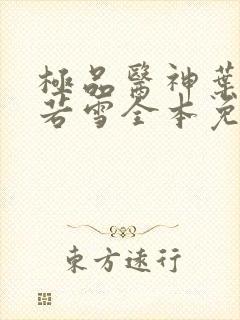 極品醫神葉
若雪全本免
東方逺行